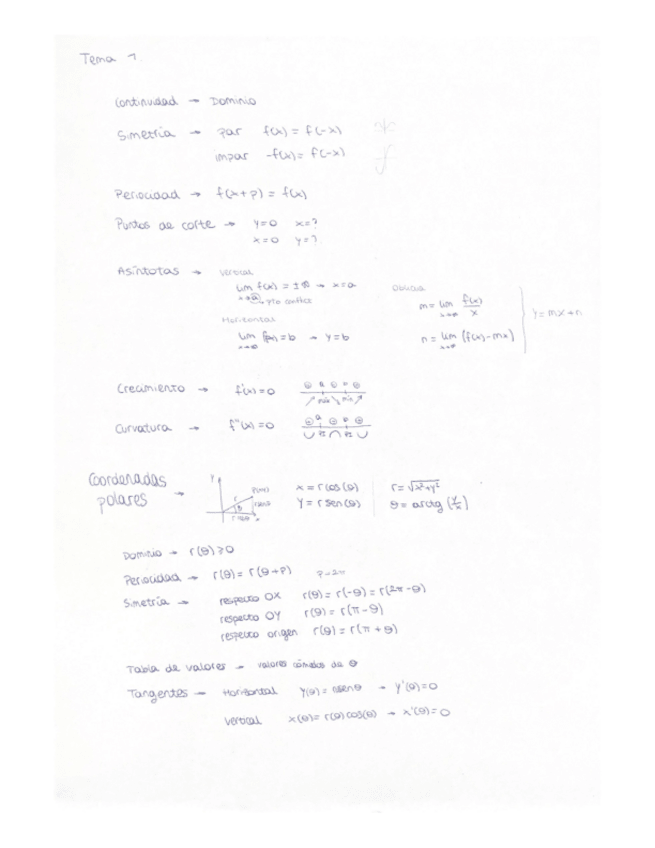 Tema 1
Continuidad → Dominio
Simetría → par f(x) = f(-x)
impar -f(x) = f(-x)
Periocidad → f(x+p) = f(x)
Puntos de corte → y=0 x=?
x=0 y=?
Asíntotas → vertical
lim f(x) = ±∞ → x=a
x→a → pto conflict
Horizontal
lim f(x) = b → y=b
x→∞
Oblicua
m = lim f(x)/x
x→∞
n = lim (f(x)-mx)
x→∞
y = mx+n
Crecimiento → f'(x)=0
máx mín
Curvatura → f''(x)=0
Coordenadas polares →
y r θ x
x = r cos(θ)
y = r sen(θ)
r = √x²+y²
θ = arctg (y/x)
Dominio → r(θ) ≥ 0
Periocidad → r(θ) = r(θ+p) p=2π
Simetría → respecto OX r(θ) = r(-θ) = r(2π-θ)
respecto OY r(θ) = r(π-θ)
respecto origen r(θ) = r(π+θ)
Tabla de valores → valores cómodos de θ
Tangentes → Horizontal y(θ) = senθ → y'(θ)=0
vertical x(θ) = r(θ) cos(θ) → x'(θ)=0